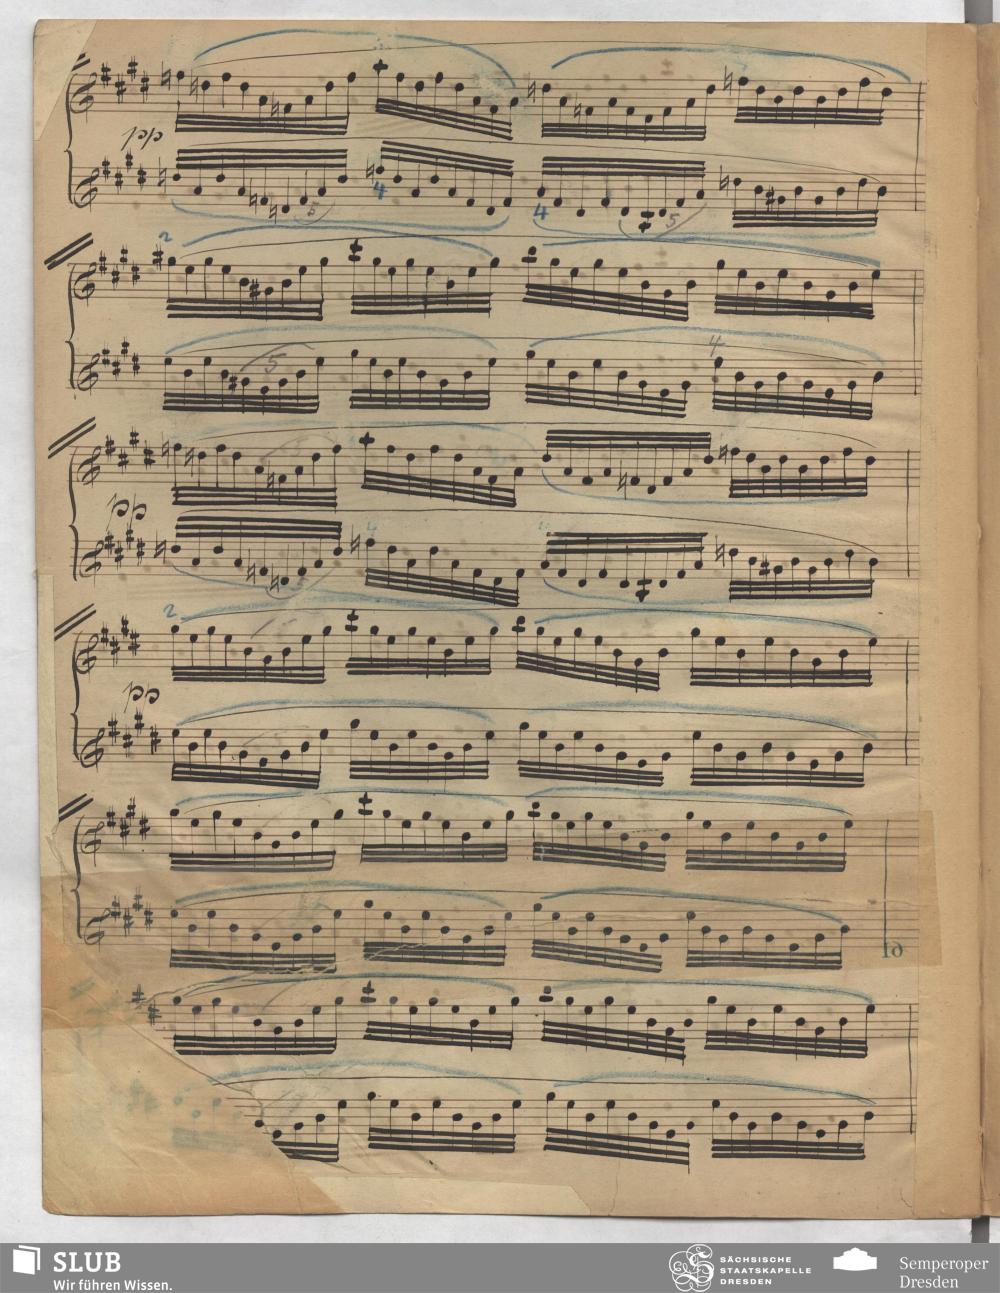 pp
5
4
4
5
2
5
4
pp
4
4
2
pp
16
SLUB
Wir führen Wissen.
SÄCHSISCHE
STAATSKAPELLE
DRESDEN
Semperoper
Dresden